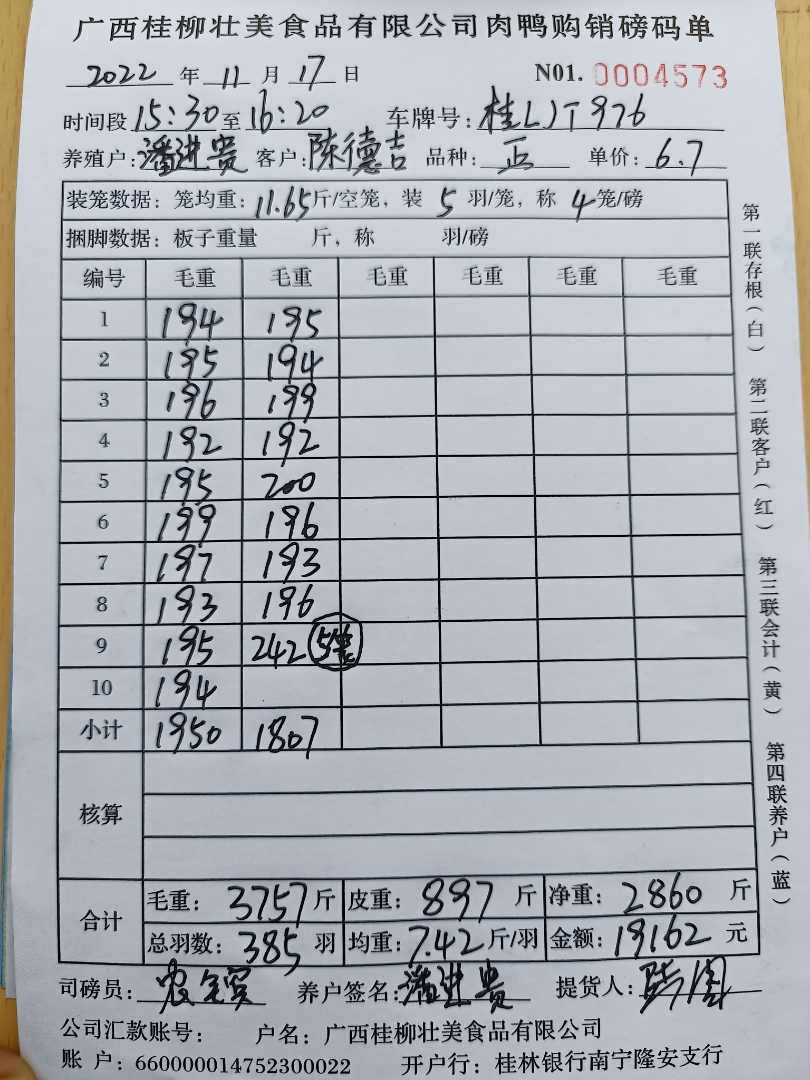 广西桂柳壮美食品有限公司肉鸭购销磅码单
2022 年 11 月 17 日 N01. 0004573
时间段 15:30 至 16:20 车牌号: 桂LJT976
养殖户: 潘进贵 客户: 陈德吉 品种: 正 单价: 6.7
装笼数据: 笼均重: 11.65 斤/空笼, 装 5 羽/笼, 称 4 笼/磅
捆脚数据: 板子重量 斤, 称 羽/磅
编号 毛重 毛重 毛重 毛重 毛重 毛重
1 194 195
2 195 194
3 196 199
4 192 192
5 195 200
6 199 196
7 197 193
8 193 196
9 195 242 5笼
10 194
小计 1950 1807
核算
合计
毛重: 3757 斤 皮重: 897 斤 净重: 2860 斤
总羽数: 385 羽 均重: 7.42 斤/羽 金额: 19162 元
司磅员: 养户签名: 潘进贵 提货人:
公司汇款账号: 户名: 广西桂柳壮美食品有限公司
账 户: 660000014752300022 开户行: 桂林银行南宁隆安支行
第一联存根(白) 第二联客户(红) 第三联会计(黄) 第四联养户(蓝)